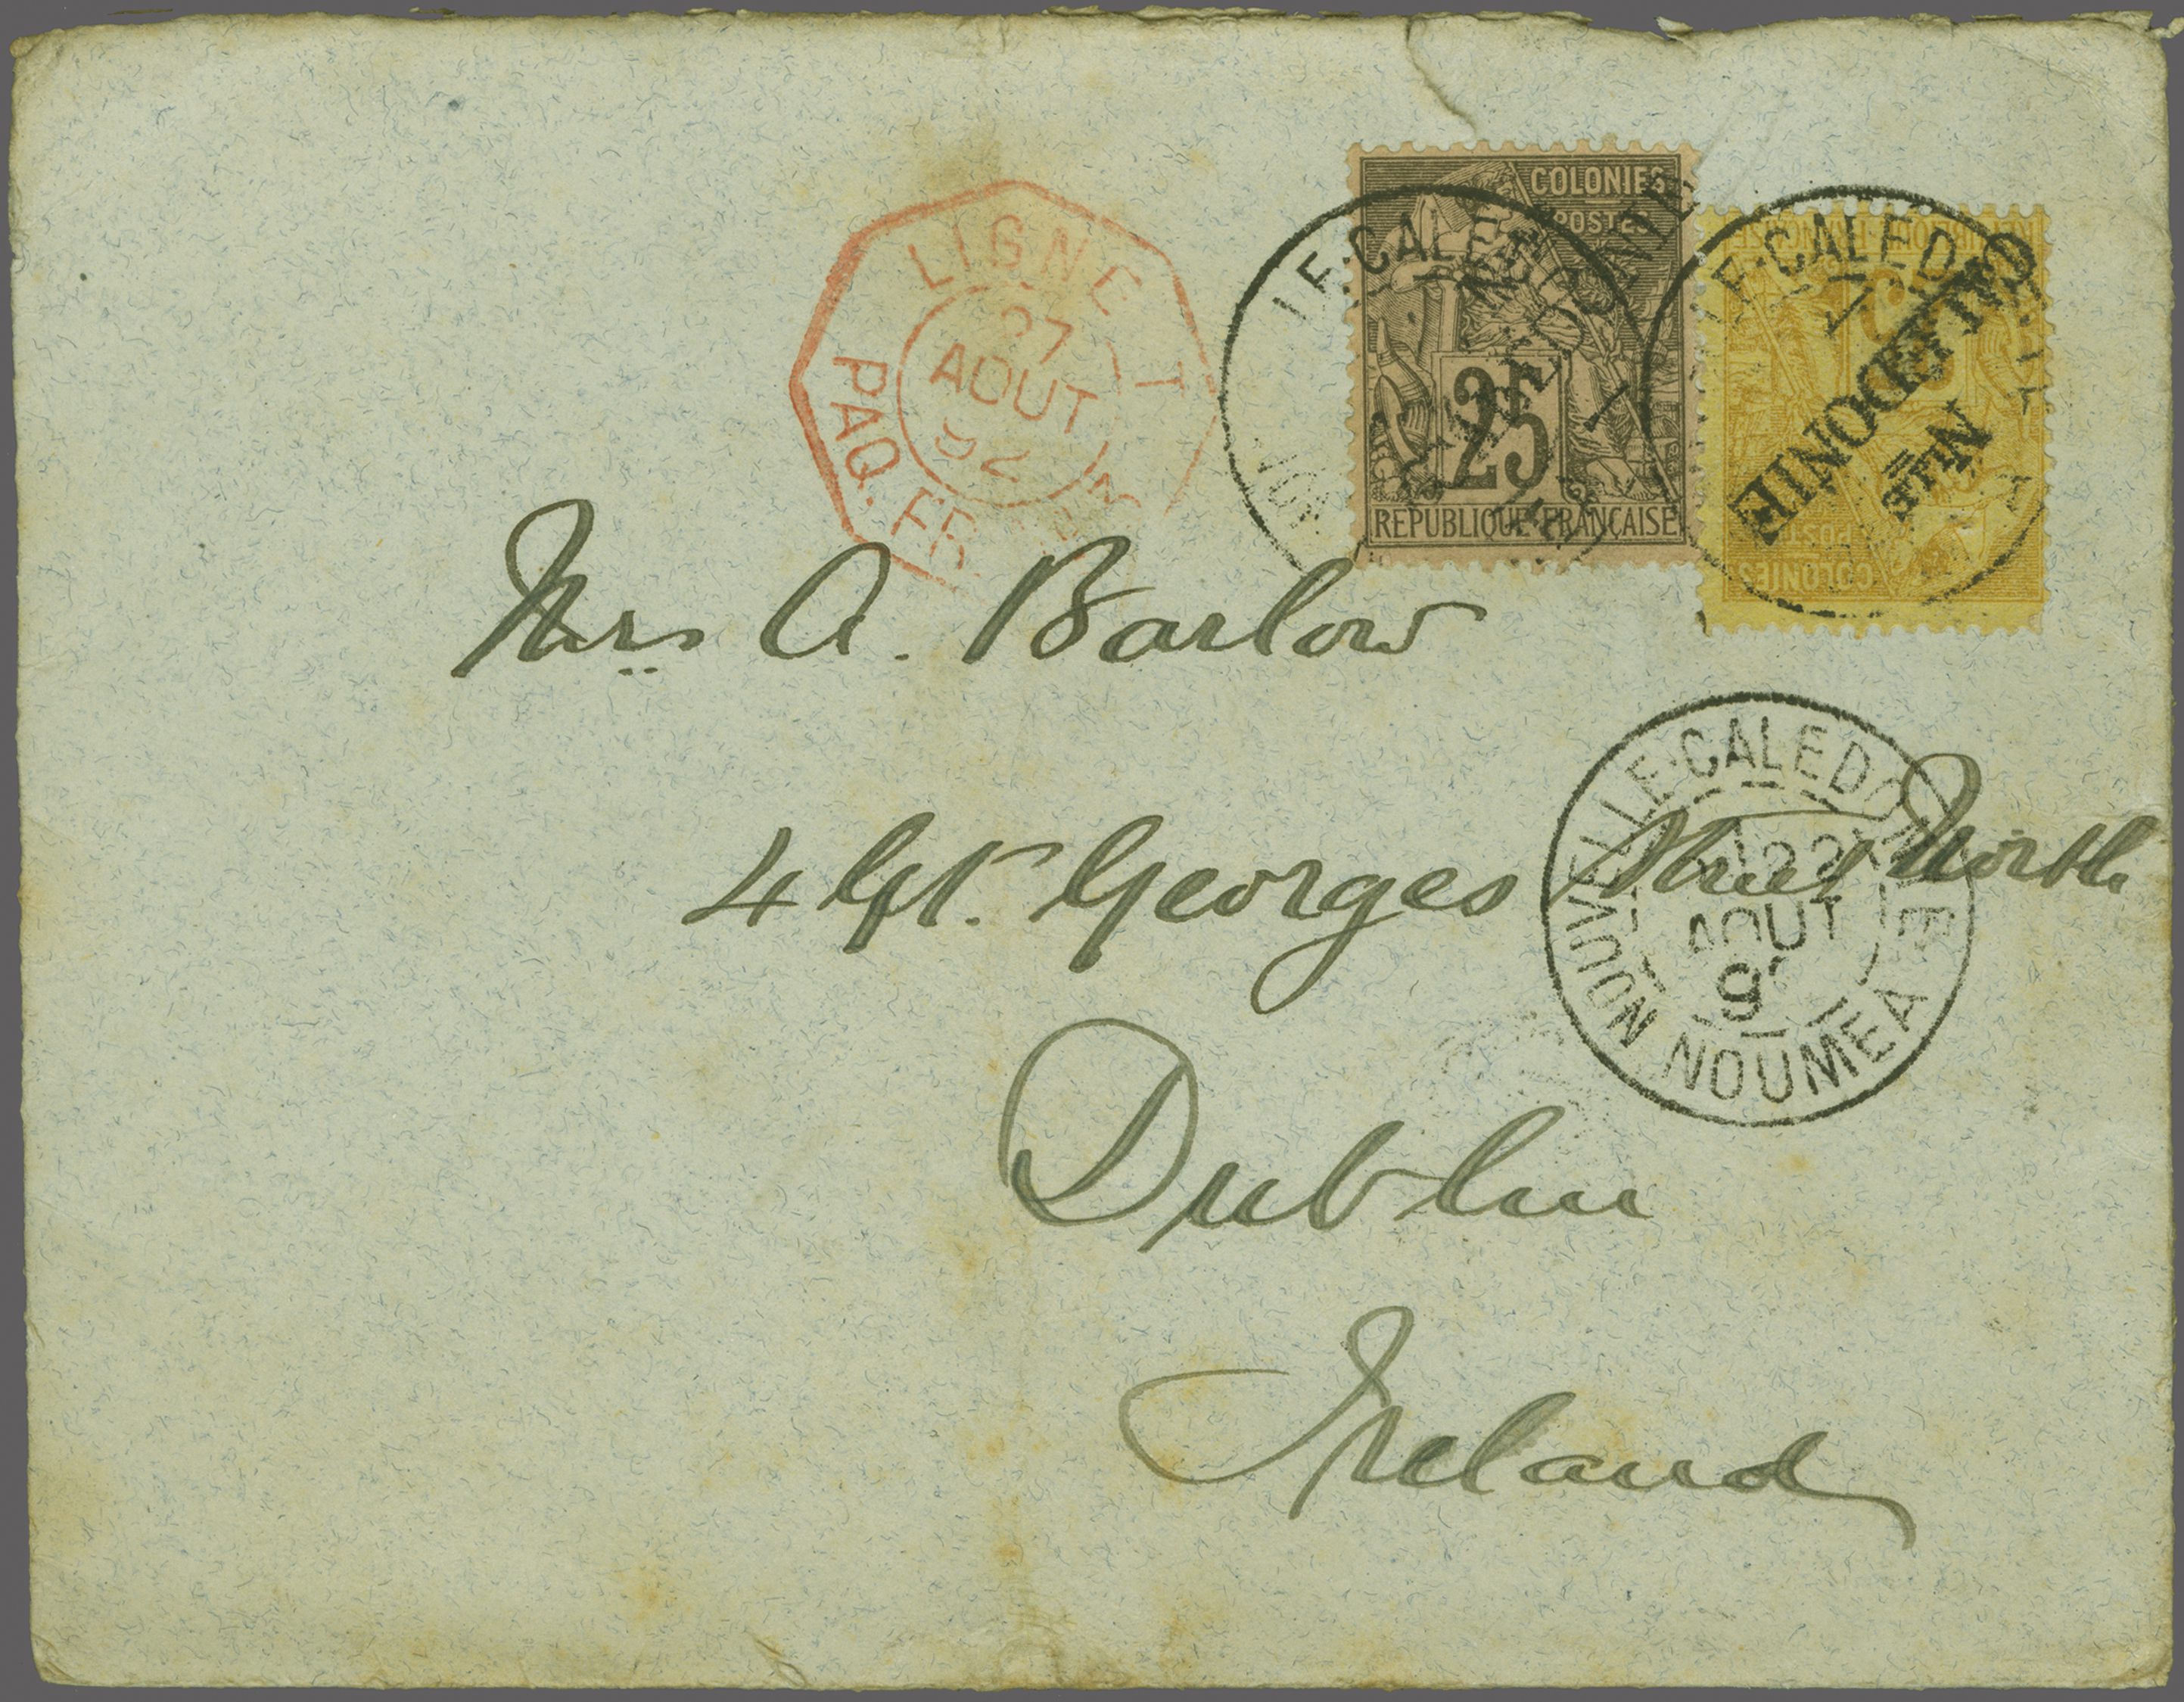 LIGNE T
27
AOUT
92
PAQ. FR.
COLONIES
POSTES
25
REPUBLIQUE FRANÇAISE
Nlle
CALEDONIE
COLONIES
POSTES
Mrs A. Barlow
4 Gt. Georges Street North
Dublin
Ireland
NOUVELLE-CALEDONIE
22
AOUT
9
NOUMEA